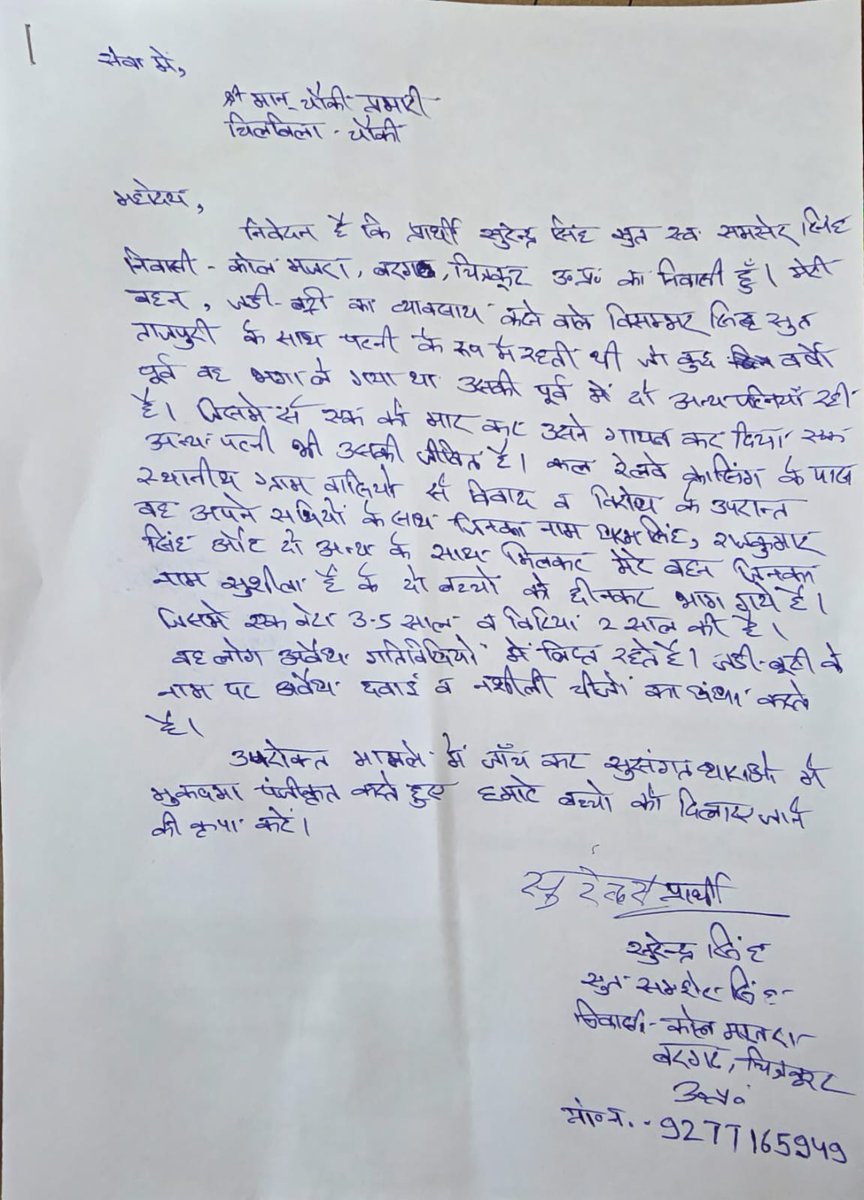 सेवा में,
श्री मान् चौकी प्रभारी
चिलबिला - चौकी
महोदय,
निवेदन है कि प्रार्थी सुरेन्द्र सिंह सुत स्व समसेर सिंह
निवासी - कोल मजरा, बरगढ़, चित्रकूट उ०प्र० का निवासी हूँ। मेरी
बहन, जडी-बूटी का व्यावसाय करने वाले विसम्भर सिंह सुत
ताजपुरी के साथ पत्नी के रूप में रहती थी जो कुछ वर्षो
पूर्व वह भगा ले गया था उसकी पूर्व में दो अन्य पत्नियाँ रही
है। जिसमे से एक को मार कर उसने गायब कर दिया एक
अन्य पत्नी भी उसकी जीवित है। कल रेलवे क्रासिंग के पास
स्थानीय ग्राम वासियो से विवाद व विरोध के उपरान्त
वह अपने साथियो के साथ जिनका नाम धरम सिंह, राजकुमार
सिंह और दो अन्य के साथ मिलकर मेरे बहन जिनका
नाम सुशीला है के दो बच्चो को छीनकर भाग गये है।
जिसमे एक बेटा 3-5 साल व बिटिया 2 साल की है।
वह लोग अवैध गतिविधियो में लिप्त रहते है। जडी-बूटी के
नाम पर अवैध दवाई व नशीली चीजो का धंधा करते
है।
उपरोक्त मामले में जाँच कर सुसंगत धाराओ में
मुकदमा पंजीकृत करते हुए हमारे बच्चो को दिलाए जाने
की कृपा करें।
प्रार्थी
सुरेन्द्र सिंह
सुत समशेर सिंह
निवासी - कोल मजरा
बरगढ़, चित्रकूट
उ०प्र०
मो०न. - 9277165949